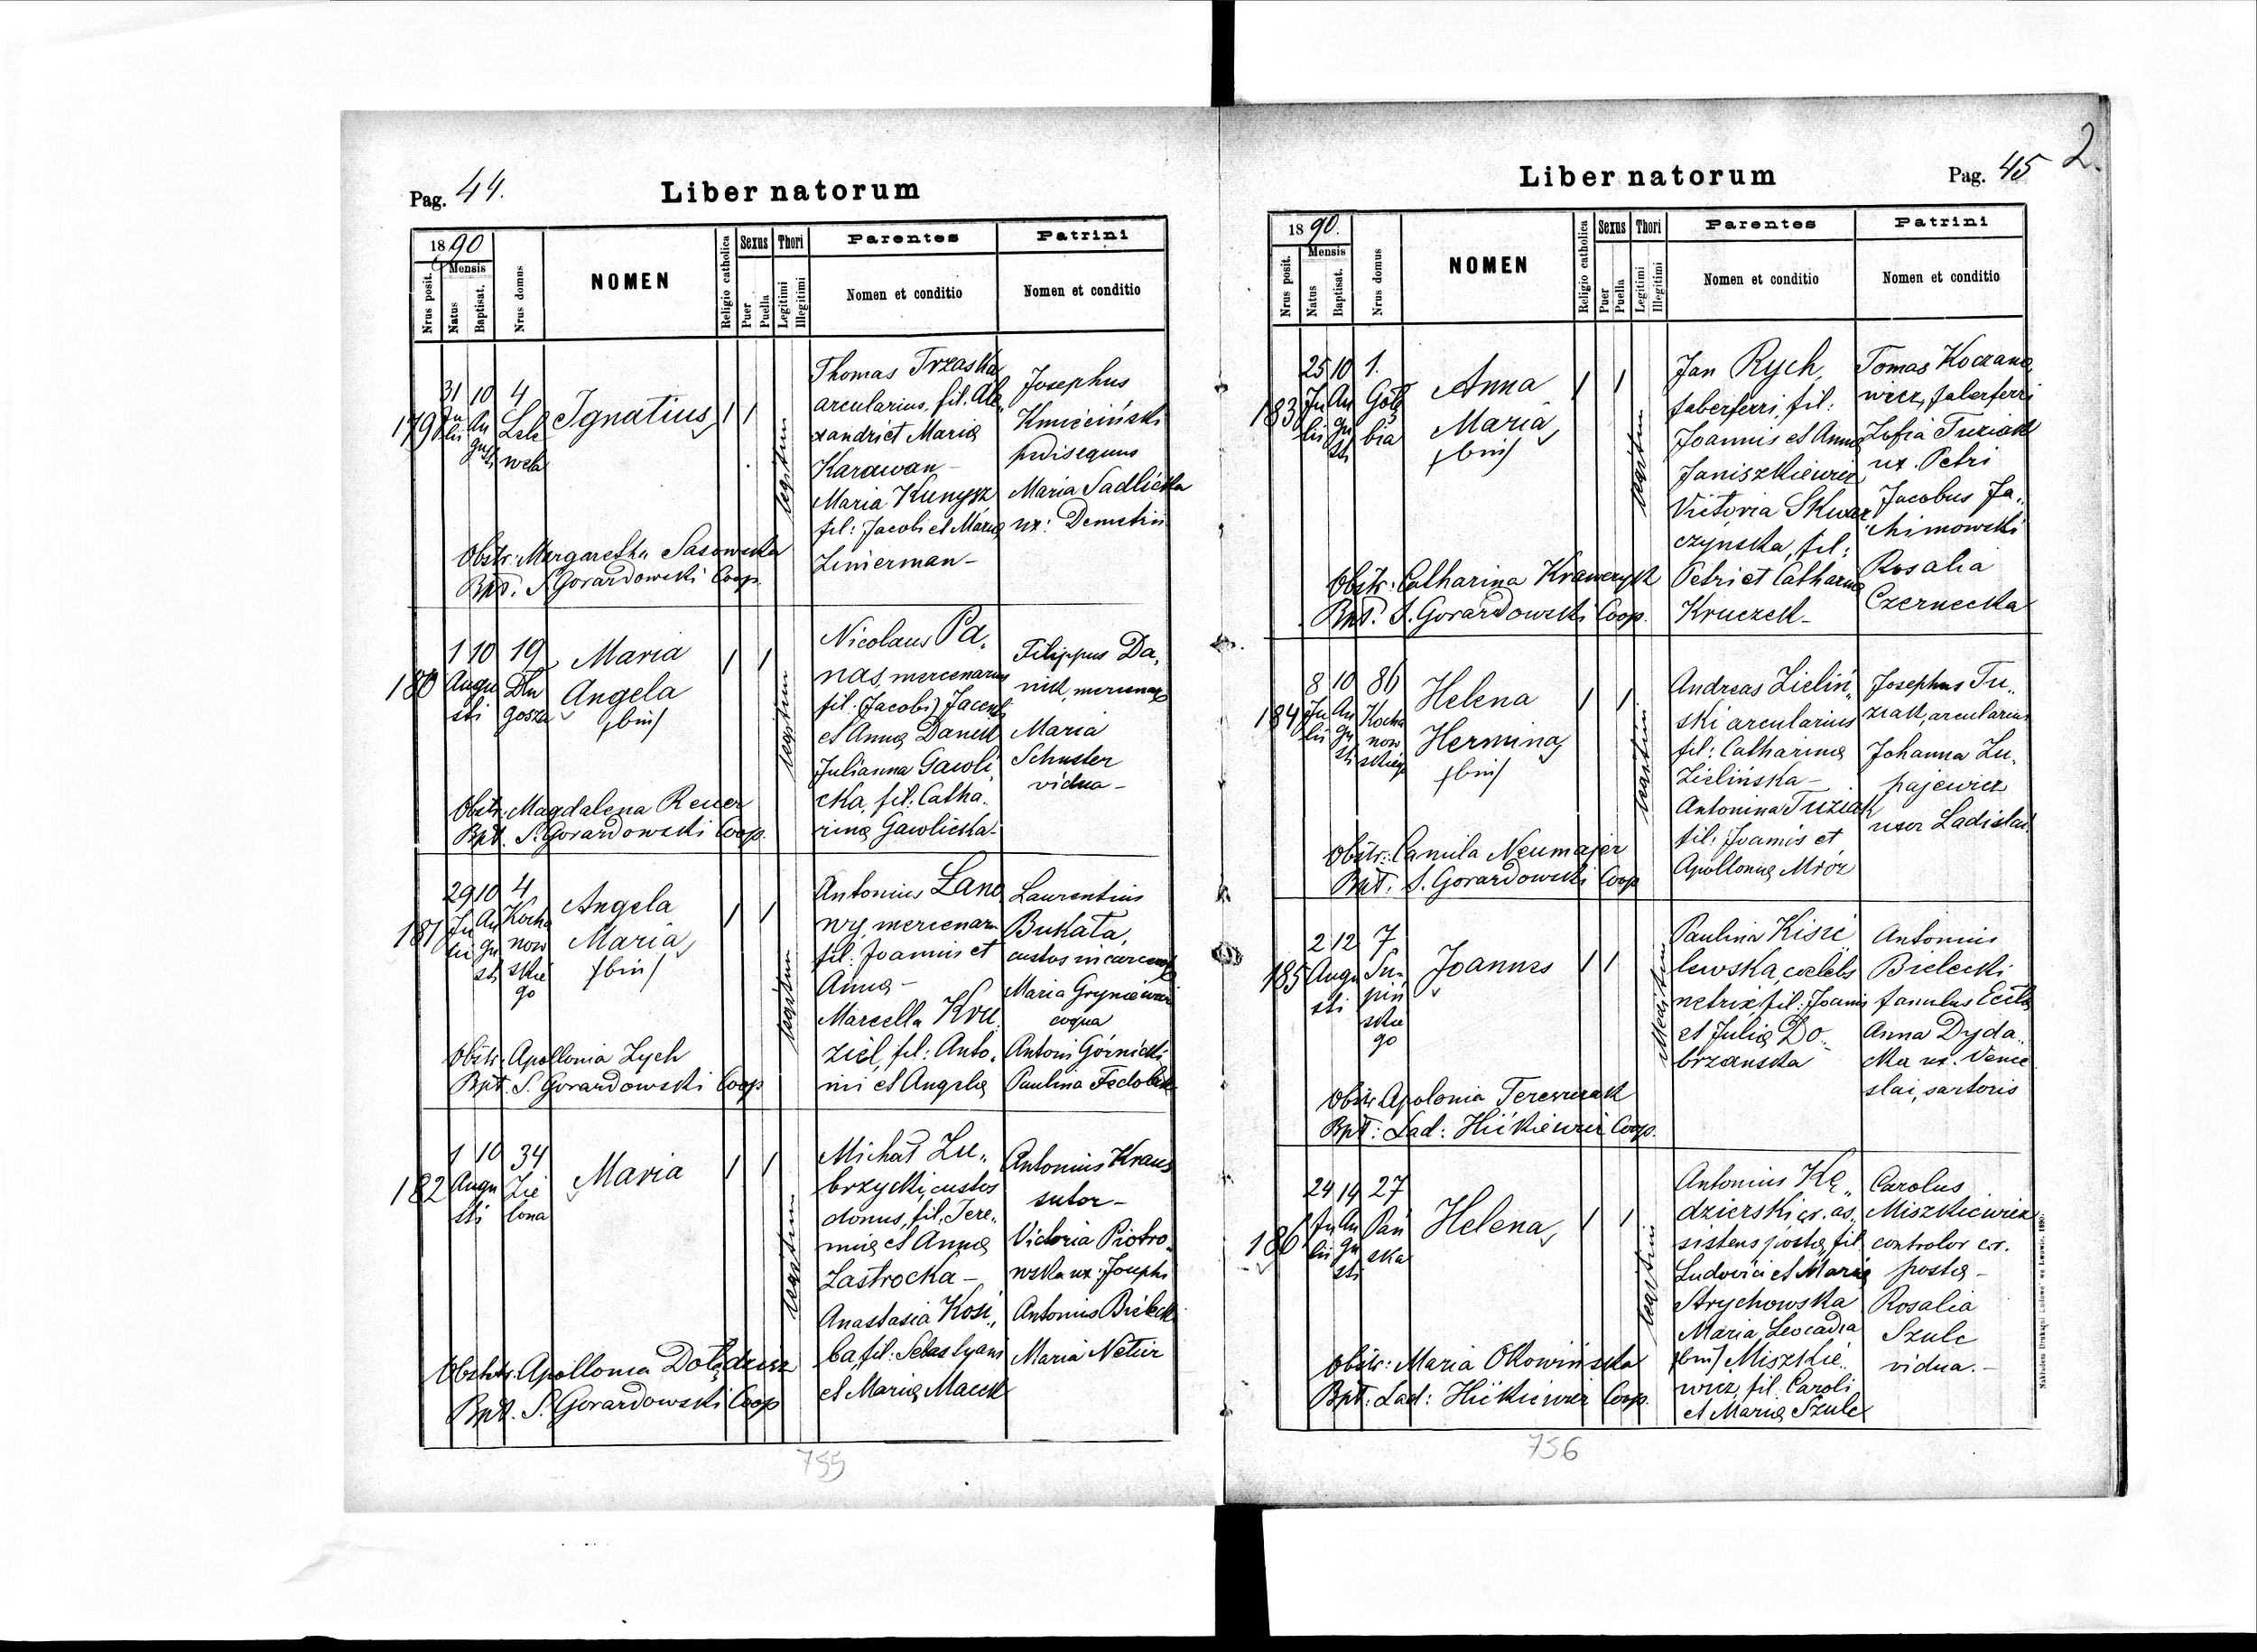 Pag. 44.
Liber natorum
1890
Mensis
Nrus posit.
Natus
Baptisat.
Nrus domus
NOMEN
Religio catholica
Sexus
Puer
Puella
Thori
Legitimi
Illegitimi
Parentes
Nomen et conditio
Patrini
Nomen et conditio
179
31 10 4
Ju
lii
Au
gusti
Ignatius
1 1
legitim
Thomas Trzaska
arcularius, fil. Ale„
xandri et Maria
Karawan –
Maria Kunysz
fil: Jacobi et Maria
Zinierman –
Josephus
Kmieciński
pedisequus
Maria Sadlicka
ux: Demetrii
Obstr. Margaretha Sasowska
Bpt. S. Gorardowski Coop.
180
1 10 19
Augu
sti
Dłu
gosza
Maria
Angela
(bin)
1 1
legitim
Nicolaus Pa„
nas, mercenarius
fil. (Jacobi) Jacenti
et Anna Danek
Julianna Gawli„
cka, fil: Catha„
rina Gawlicka –
Filippus Da„
nik, mercenar
Maria
Schuster
vidua –
Obstr. Magdalena Rener
Bpt. S. Gorardowski Coop.
181
29 10 4
Ju
lii
Au
gu
sti
Kocha
now
skie
go
Angela
Maria
(bin)
1 1
legitim
Antonius Lano
wy, mercenar
fil: Joannis et
Anna –
Marcella Kru„
ziel, fil: Anto„
nii et Angela
Laurentius
Bukata,
custos in carcere
Maria
coqua
Antoni Górnicki
Paulina
Obstr. Apollonia Zych
Bpt. S. Gorardowski Coop
182
1 10 34
Augu
sti
Zie
lona
Maria
1 1
legitim
Michał Zu„
brzycki, custos
domus, fil. Jere„
mia et Anna
Zastrocka –
Anastasia Kosi„
ba, fil: Sebastyani
et Maria Macek
Antonius Kraus
sutor –
Victoria Piotro„
wska ux: Josephi
Antonius Bielecki
Maria Netur
Obstetr. Apollonia
Bpt. S. Gorardowski Coop
755
2.
Liber natorum
Pag. 45
1890.
Mensis
Nrus posit.
Natus
Baptisat.
Nrus domus
NOMEN
Religio catholica
Sexus
Puer
Puella
Thori
Legitimi
Illegitimi
Parentes
Nomen et conditio
Patrini
Nomen et conditio
183
25 10 1.
Ju
lii
Au
gu
sti
Gołę
bia
Anna
Maria
(bin)
1 1
legitim
Jan Rych
faberferri, fil:
Joannis et Anna
Janiszkiewicz
Victoria Skwar„
czyńska, fil:
Petri et Catharina
Kruczek –
Tomas Koczano„
wicz, faberferri
Zofia Tuziak
ux. Petri
Jacobus Ja„
chimowski
Rosalia
Czernecka
Obstr: Catharina Krawczyk
Bpt: S. Gorardowski Coop.
184
8 10 86
Ju
lii
Au
gu
sti
Kocha
now
skiego
Helena
Hermina
(bin)
1 1
legitim
Andreas Zieliń„
ski arcularius
fil: Catharina
Zielińska –
Antonina Tuziak
fil: Joannis et
Apollonia Mróz
Josephus Tu„
ziak, arcularius
Johanna Zu„
pajewicz
uxor Ladislai
Obstr: Camila Neumajer
Bpt: S. Gorardowski Coop
185
2 12 7
Augu
sti
Joannes
1 1
Illegitim
Paulina Kisie
lewska, caelebs
netrix, fil: Joannis
et Julia Do„
brzanska
Antonius
Bielecki
famulus
Anna Dyda„
cka ux. Vence
slai, sartoris
Obstr. Apolonia Tereszczak
Bpt: Lad: Hickiewicz Coop.
186
24 14 27
Ju
lii
Au
gu
sti
Pań
ska
Helena
1 1
legitim
Antonius Kę„
dzierski cr. as„
sistens posta, fil.
Ludovici et Maria
Strychowska
Maria Leocadia
(bin) Miszkie„
wicz, fil. Caroli
et Maria Szulc
Carolus
Miszkiewicz
controlor cr.
posta –
Rosalia
Szulc
vidua. –
Obstr: Maria Okowińska
Bpt: Lad: Hickiewicz Coop.
Nakładem Drukarni Ludowej we Lwowie. 1890.
756